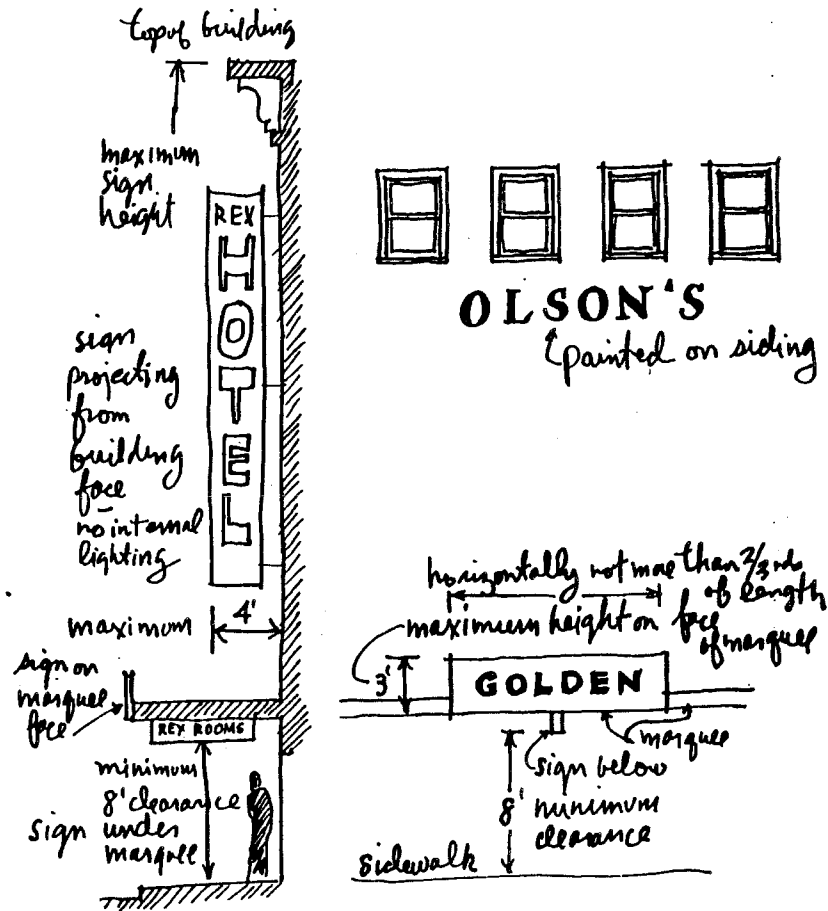 top of building
maximum
sign
height
REX
HOTEL
sign
projecting
from
building
face
no internal
lighting
maximum
4'
sign on
marquee
face
REX ROOMS
minimum
8' clearance
sign under
marquee
OLSON'S
painted on siding
horizontally not more than 2/3rds
of length
maximum height on face
of marquee
3'
GOLDEN
marquee
sign below
8' minimum
clearance
sidewalk